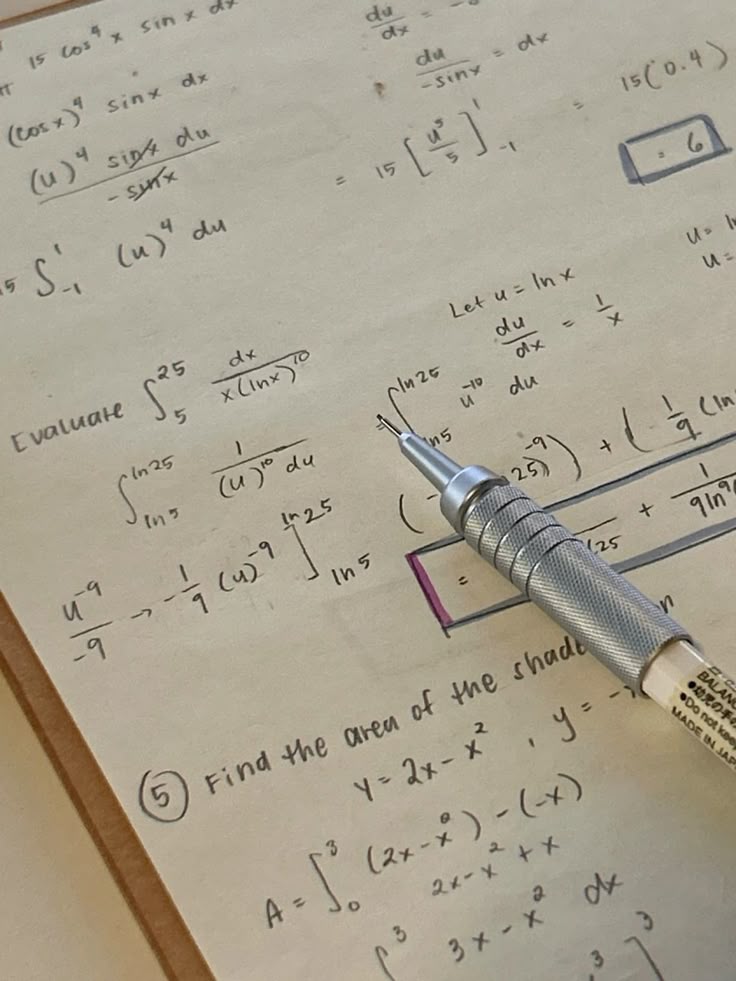 15 cos⁴ x sin x dx
du/dx = -
(cosx)⁴ sinx dx
du/-sinx = dx
(u)⁴ sinx du/-sinx
= 15 [u⁵/5]¹₋₁
= 15(0.4)
= 6
15 ∫₋₁¹ (u)⁴ du
Let u = ln x
u =
du/dx = 1/x
u =
Evaluate ∫₅²⁵ dx/x(lnx)¹⁰
= ∫ ln25 ln5 u⁻¹⁰ du
∫ ln5 ln25 1/(u)¹⁰ du
(- 25)⁻⁹) + (-1/9 (ln
u⁻⁹/-9 → -1/9 (u)⁻⁹ ] ln25 ln5
= 25 + 1/9ln⁹
⑤ Find the area of the
y = 2x - x² , y = -
A = ∫₀³ (2x - x²) - (-x)
2x - x² + x
∫³ 3x - x² dx
³ ]³
BALAN
Do not keep
MADE IN JAP